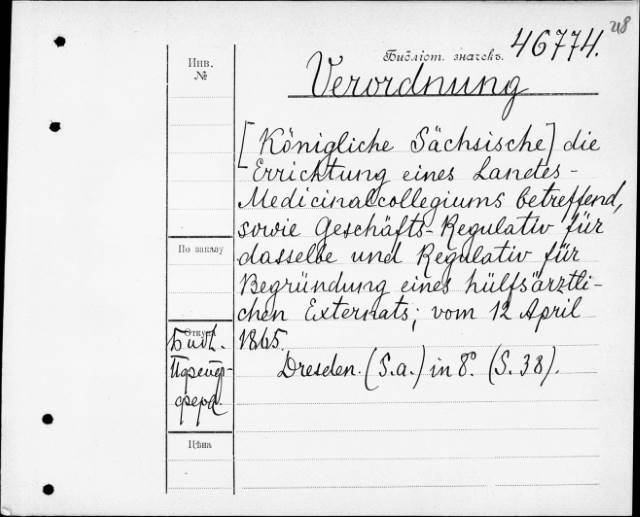 218
Библіот. значекъ. 46774.
Инв.
№
Verordnung
[Königliche Sächsische] die
Errichtung eines Landes-
Medicinalcollegiums betreffend,
sowie Geschäfts-Regulativ für
dasselbe und Regulativ für
Begründung eines hülfsärztli-
chen Externats; vom 12 April
1865.
Dresden. (S.a.) in 8º. (S. 38).
По заказу
Откуда
Библ.
Цѣна